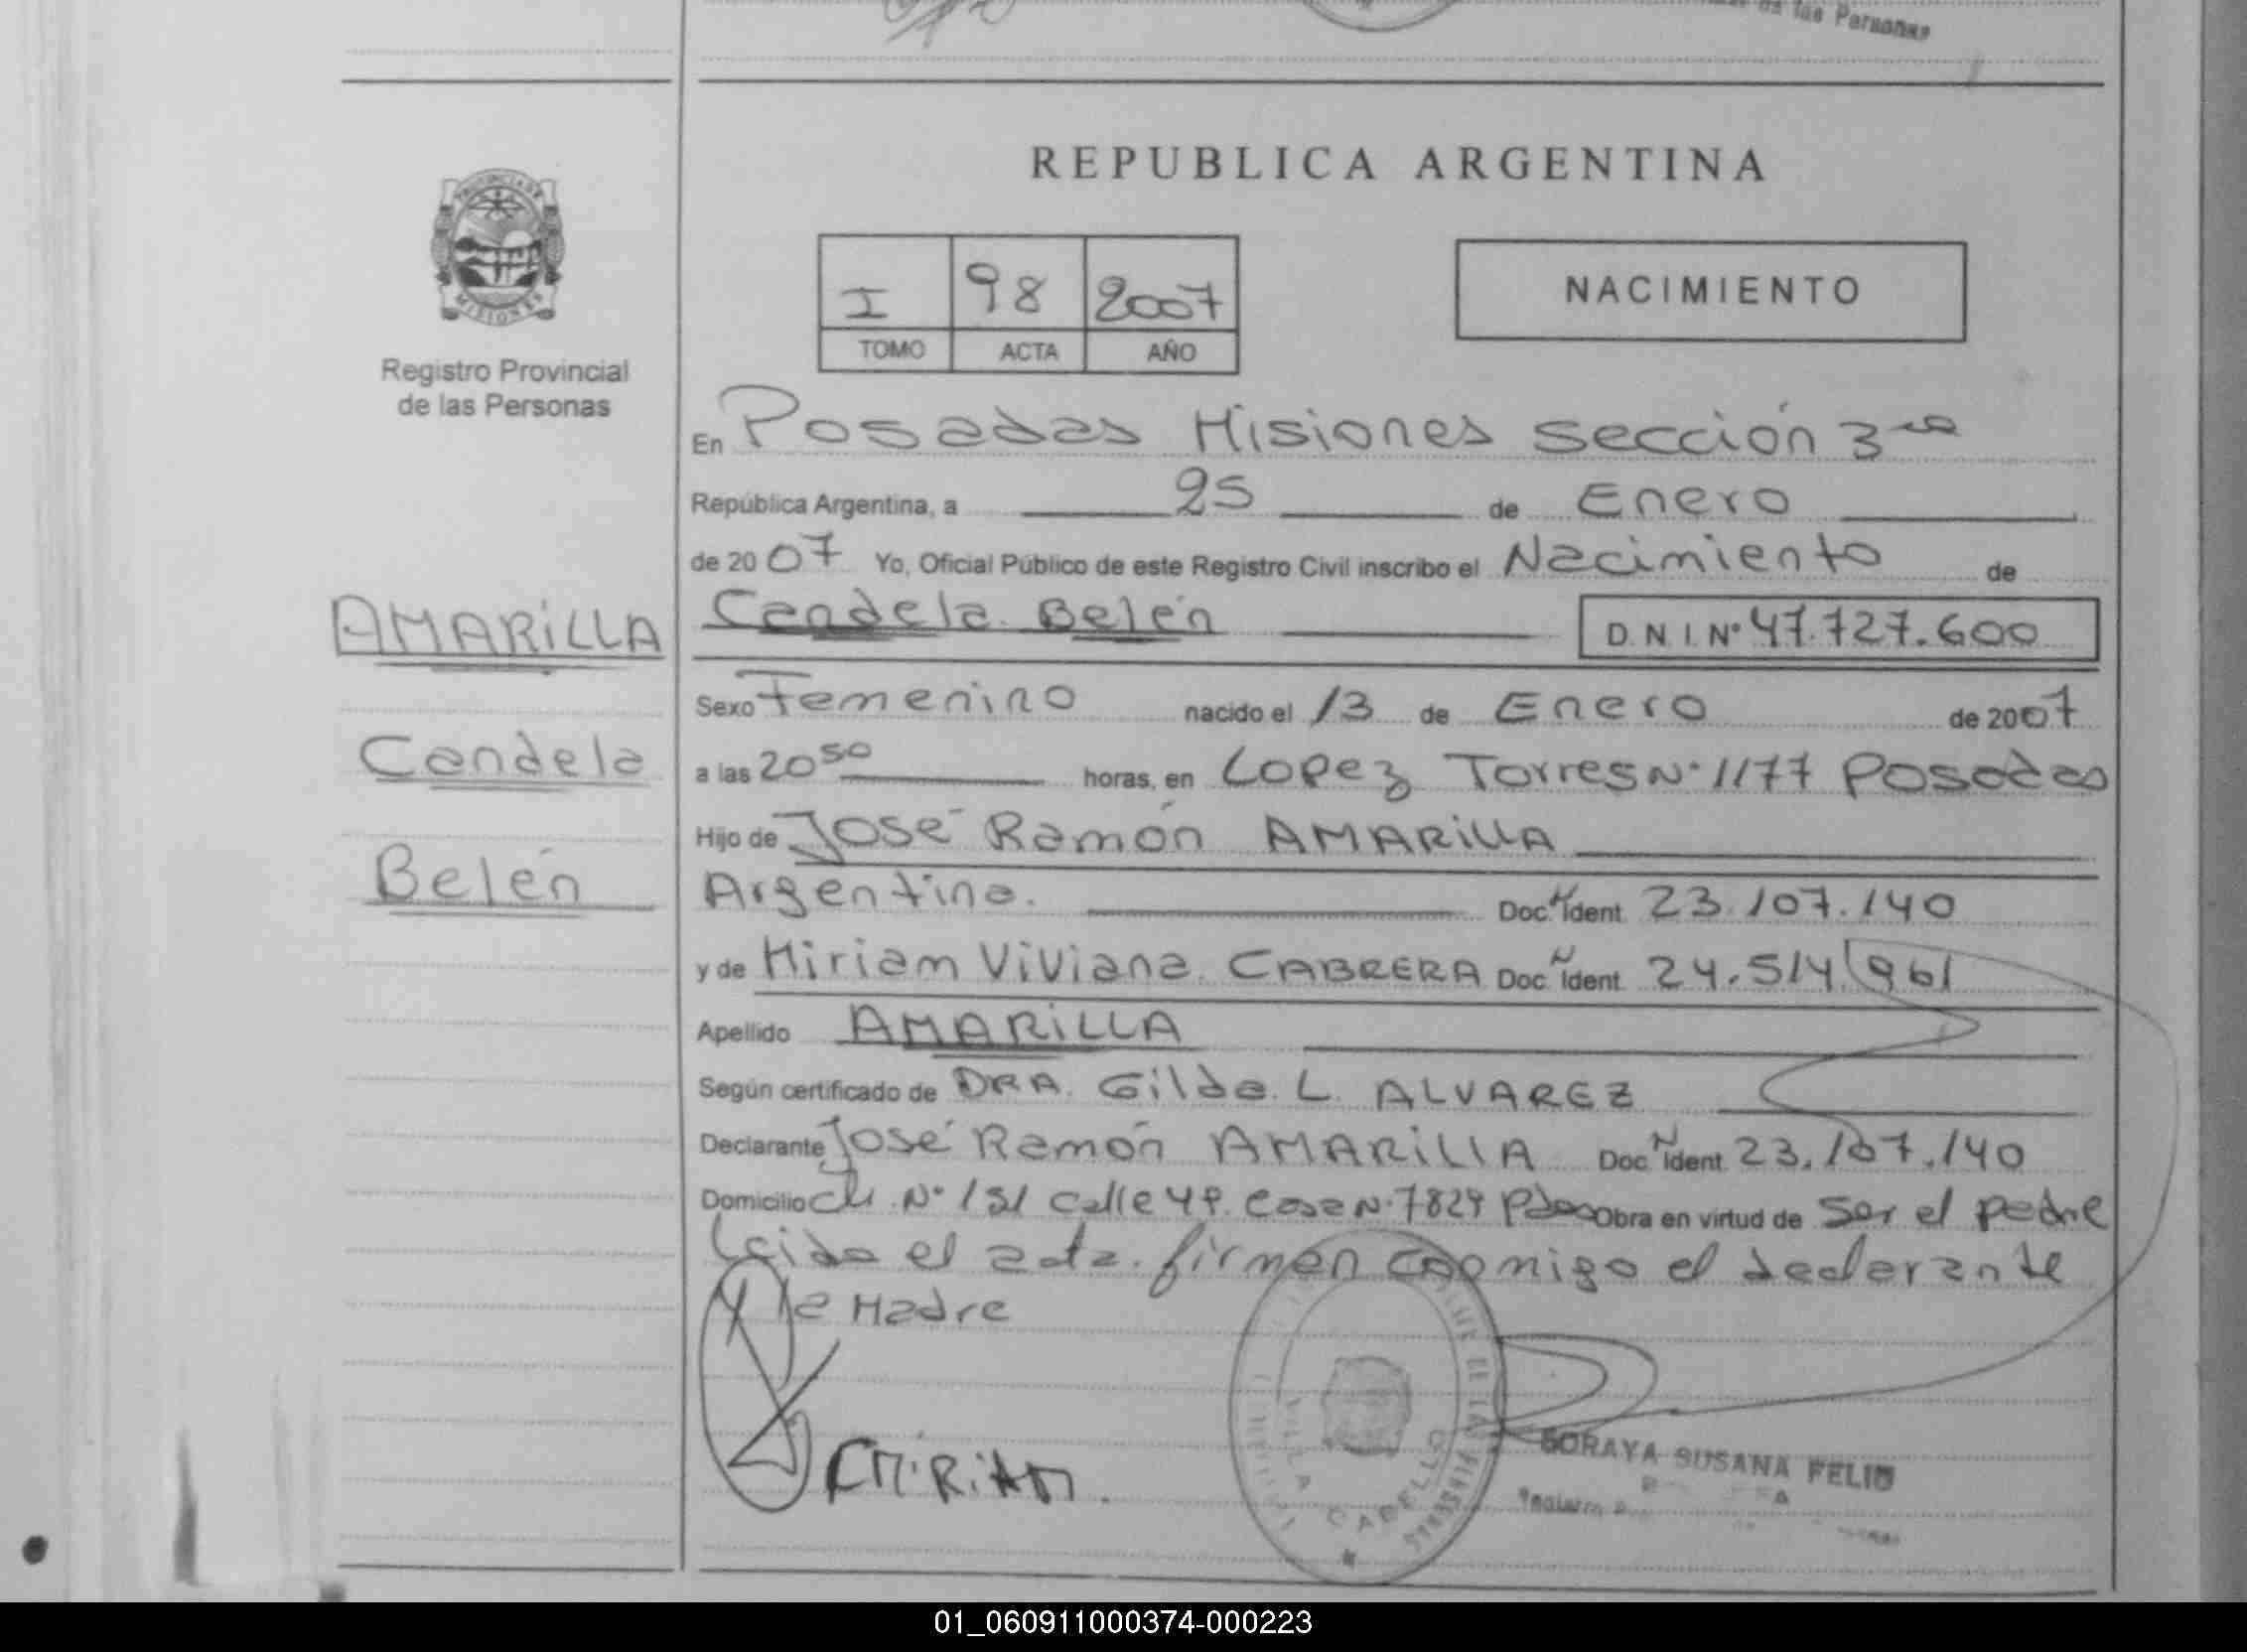 de las Personas
REPUBLICA ARGENTINA
PROVINCIA DE
MISIONES
Registro Provincial
de las Personas
I 98 2007
TOMO ACTA AÑO
NACIMIENTO
En Posadas Misiones sección 3ra
República Argentina, a 25 de Enero
de 2007 Yo, Oficial Público de este Registro Civil inscribo el Nacimiento de
AMARILLA
Candela
Belén
Candela Belén D.N.I. Nº 47.727.600
Sexo Femenino nacido el 13 de Enero de 2007
a las 20 50 horas, en Lopez Torres Nº 1177 Posadas
Hijo de José Ramón AMARILLA
Argentina. Doc. N Ident. 23.107.140
y de Miriam Viviana CABRERA Doc. N Ident. 24.514.961
Apellido AMARILLA
Según certificado de DRA. Gilda L. ALVAREZ
Declarante José Ramón AMARILLA Doc. N Ident. 23.107.140
Domicilio Ch. Nº 131 calle 49 casa Nº 7829 Pdas Obra en virtud de ser el padre
Leida el acta. firman conmigo el declarante
y la Madre
MIRIAM.
VILLA CABELLO
DE LAS PERSONAS
SORAYA SUSANA FELIU
01_060911000374-000223